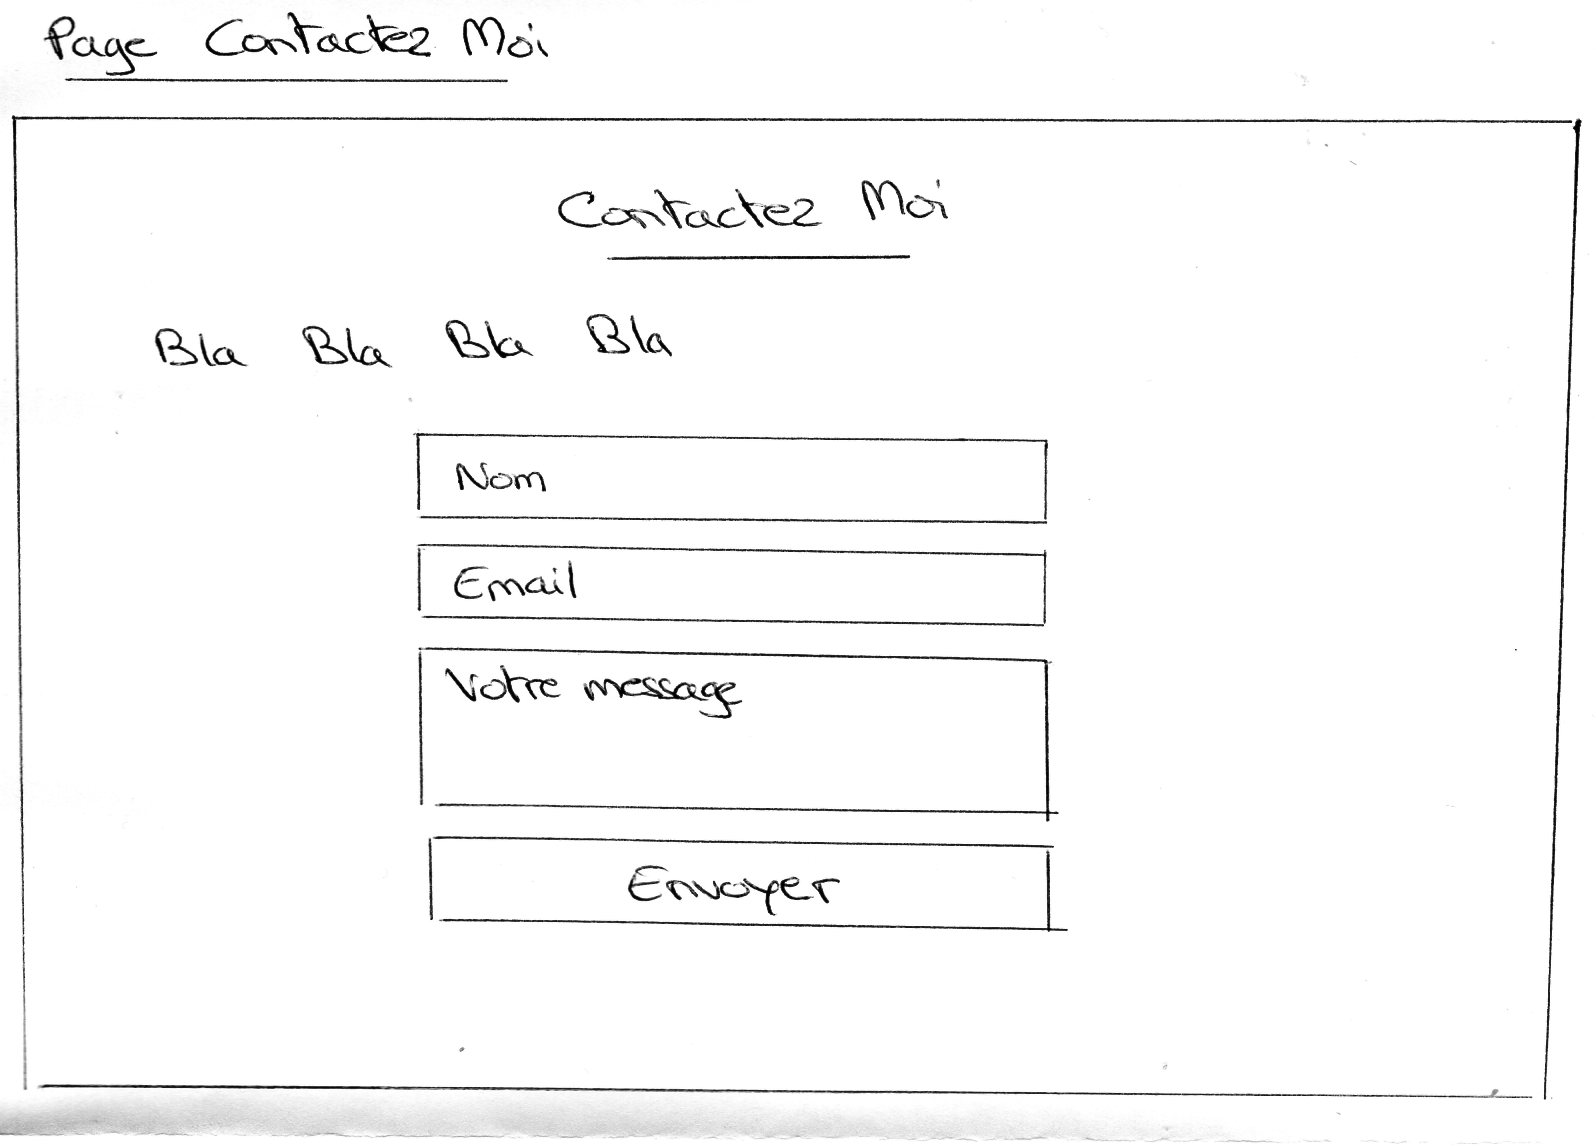 Page Contactez Moi
Contactez Moi
Bla Bla Bla Bla
Nom
Email
Votre message
Envoyer